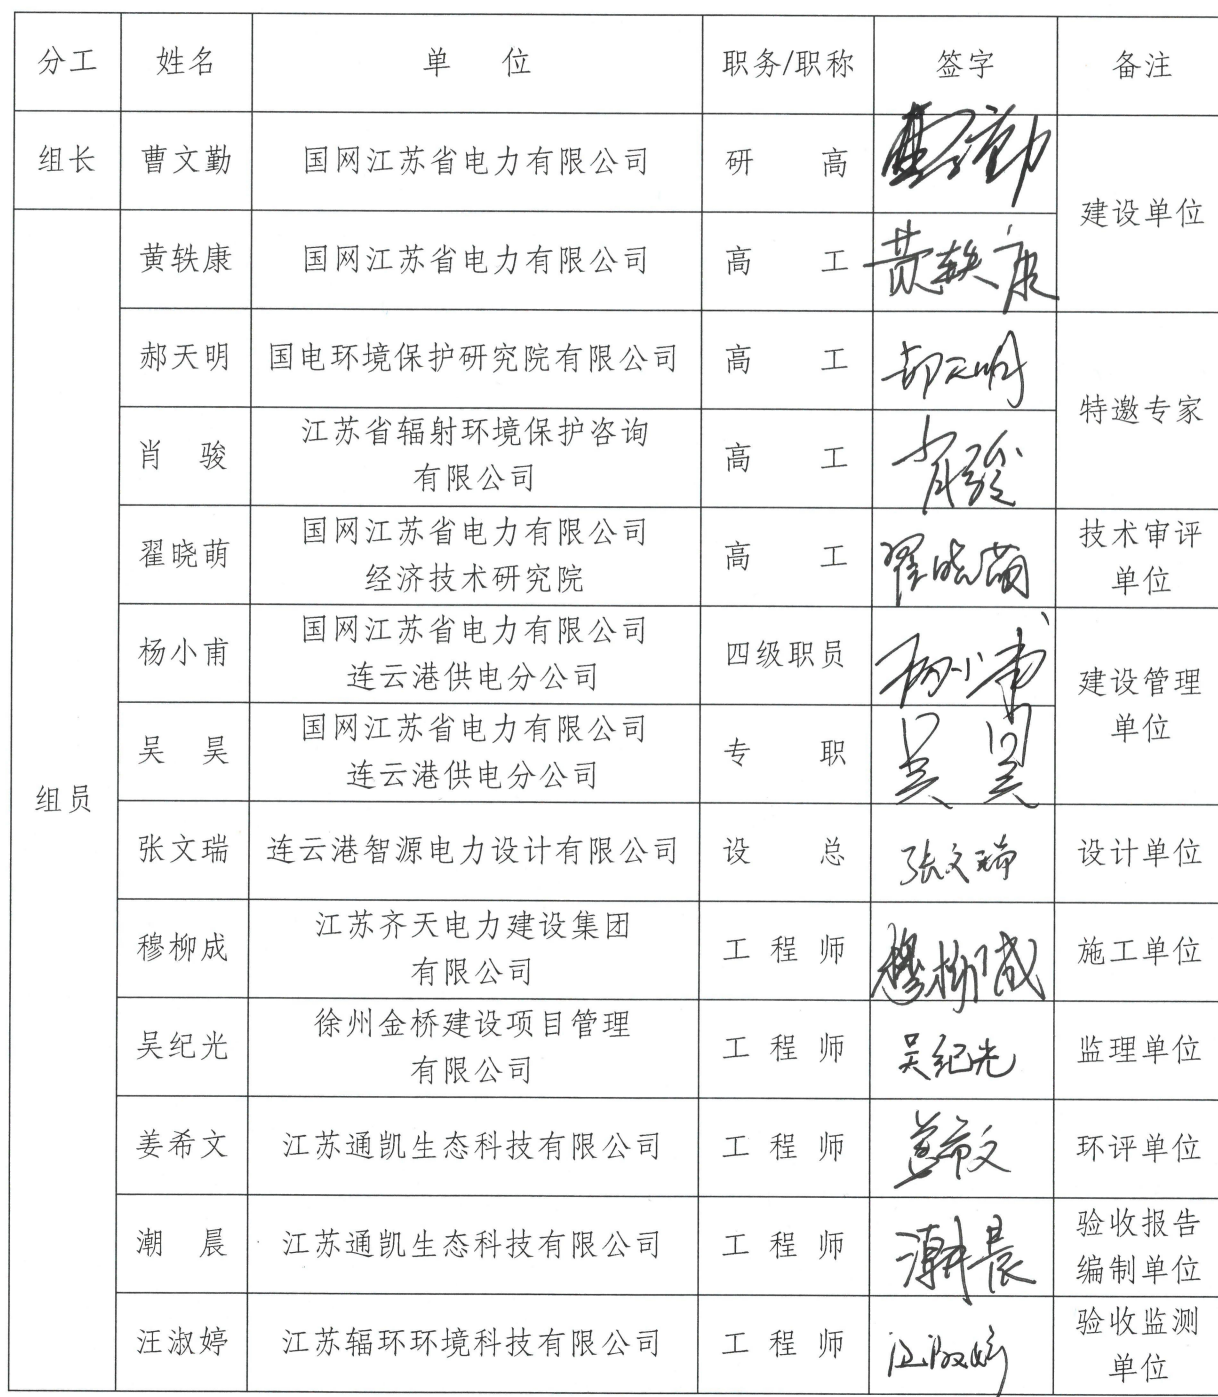 分工 姓名 单 位 职务/职称 签字 备注
组长 曹文勤 国网江苏省电力有限公司 研 高 曹文勤
建设单位
黄轶康 国网江苏省电力有限公司 高 工 黄轶康
郝天明 国电环境保护研究院有限公司 高 工 郝天明
特邀专家
肖 骏 江苏省辐射环境保护咨询
有限公司
高 工 肖骏
翟晓萌 国网江苏省电力有限公司
经济技术研究院
高 工 翟晓萌 技术审评
单位
杨小甫 国网江苏省电力有限公司
连云港供电分公司
四级职员 杨小甫
建设管理
单位
吴 昊 国网江苏省电力有限公司
连云港供电分公司
专 职 吴昊
组员
张文瑞 连云港智源电力设计有限公司 设 总 张文瑞 设计单位
穆柳成 江苏齐天电力建设集团
有限公司
工 程 师 穆柳成 施工单位
吴纪光 徐州金桥建设项目管理
有限公司
工 程 师 吴纪光 监理单位
姜希文 江苏通凯生态科技有限公司 工 程 师 姜希文 环评单位
潮 晨 江苏通凯生态科技有限公司 工 程 师 潮晨 验收报告
编制单位
汪淑婷 江苏辐环环境科技有限公司 工 程 师 汪淑婷 验收监测
单位